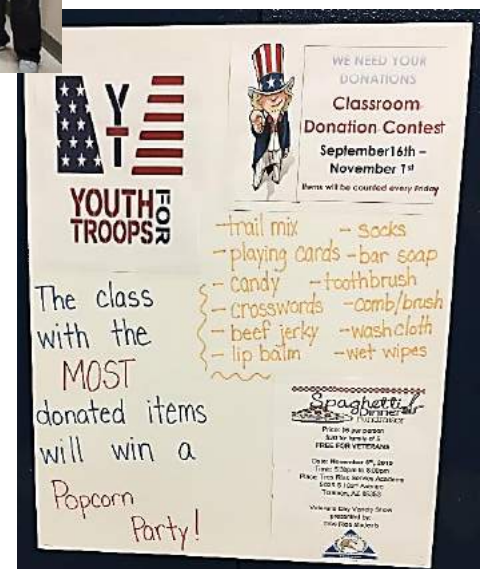 YT
YOUTH FOR
TROOPS
WE NEED YOUR
DONATIONS
Classroom
Donation Contest
September16th –
November 1st
Items will be counted every Friday
-trail mix
- playing cards
- candy
- crosswords
- beef jerky
- lip balm
- socks
-bar soap
-toothbrush
-comb/brush
-washcloth
-wet wipes
The class
with the
MOST
donated items
will win a
Popcorn
Party!
Spaghetti
Dinner
Fundraiser
per person
for family of 5
FREE FOR VETERANS
Date: November
Time: 5:30pm to 8:00pm
Place: Tres Rios Service Academy
Avenue
Tolleson, AZ 85353
Veterans Day Variety Show
presented by:
Tres Rios students